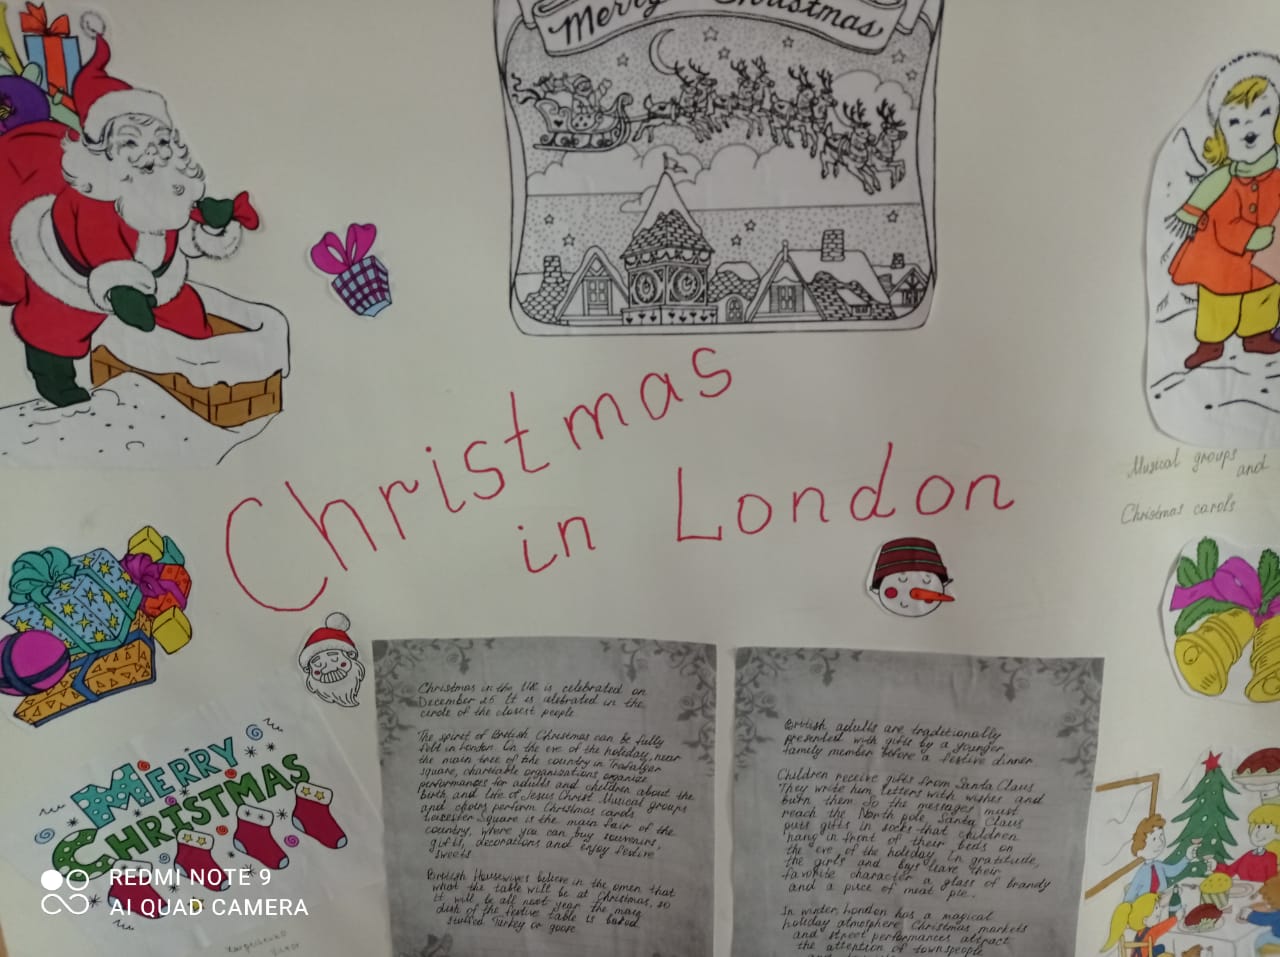 Merry Christmas
Christmas
in London
Musical groups
and
Christmas carols
Christmas in the UK is celebrated on
December 25. It is celebrated in the
circle of the closest people
The spirit of British Christmas can be fully
felt in London. On the eve of the holiday, near
the main tree of the country in Trafalgar
square, charitable organizations organize
performances for adults and children about the
birth and life of Jesus Christ. Musical groups
and choirs perform Christmas carols
Leicester Square is the main fair of the
country, where you can buy souvenirs,
gifts, decorations and enjoy festive
sweets
British Housewives believe in the omen that
what the table will be at Christmas, so
it will be all next year the main
dish of the festive table is baked
stuffed Turkey or goose
British adults are traditionally
presented with gifts by a younger
family member before a festive dinner
Children receive gifts from Santa Claus
They write him letters with wishes and
burn them so the message must
reach the North pole. Santa Claus
puts gifts in socks that children
hang in front of their beds on
the eve of the holiday. In gratitude,
the girls and boys leave their
favorite character a glass of brandy
and a piece of meat pie.
In winter, London has a magical
holiday atmosphere Christmas markets
and street performances attract
the attention of townspeople
MERRY
CHRISTMAS
REDMI NOTE 9
AI QUAD CAMERA